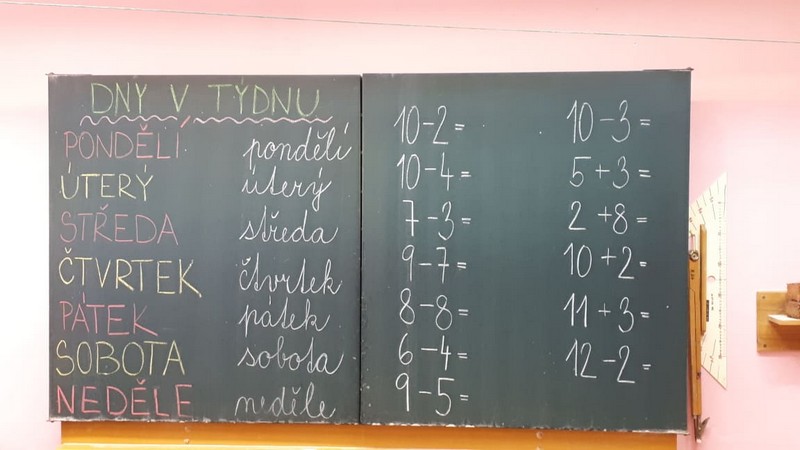 DNY V TÝDNU
PONDĚLÍ pondělí
ÚTERÝ úterý
STŘEDA středa
ČTVRTEK čtvrtek
PÁTEK pátek
SOBOTA sobota
NEDĚLE neděle
10-2= 10-3=
10-4= 5+3=
7-3= 2+8=
9-7= 10+2=
8-8= 11+3=
6-4= 12-2=
9-5=